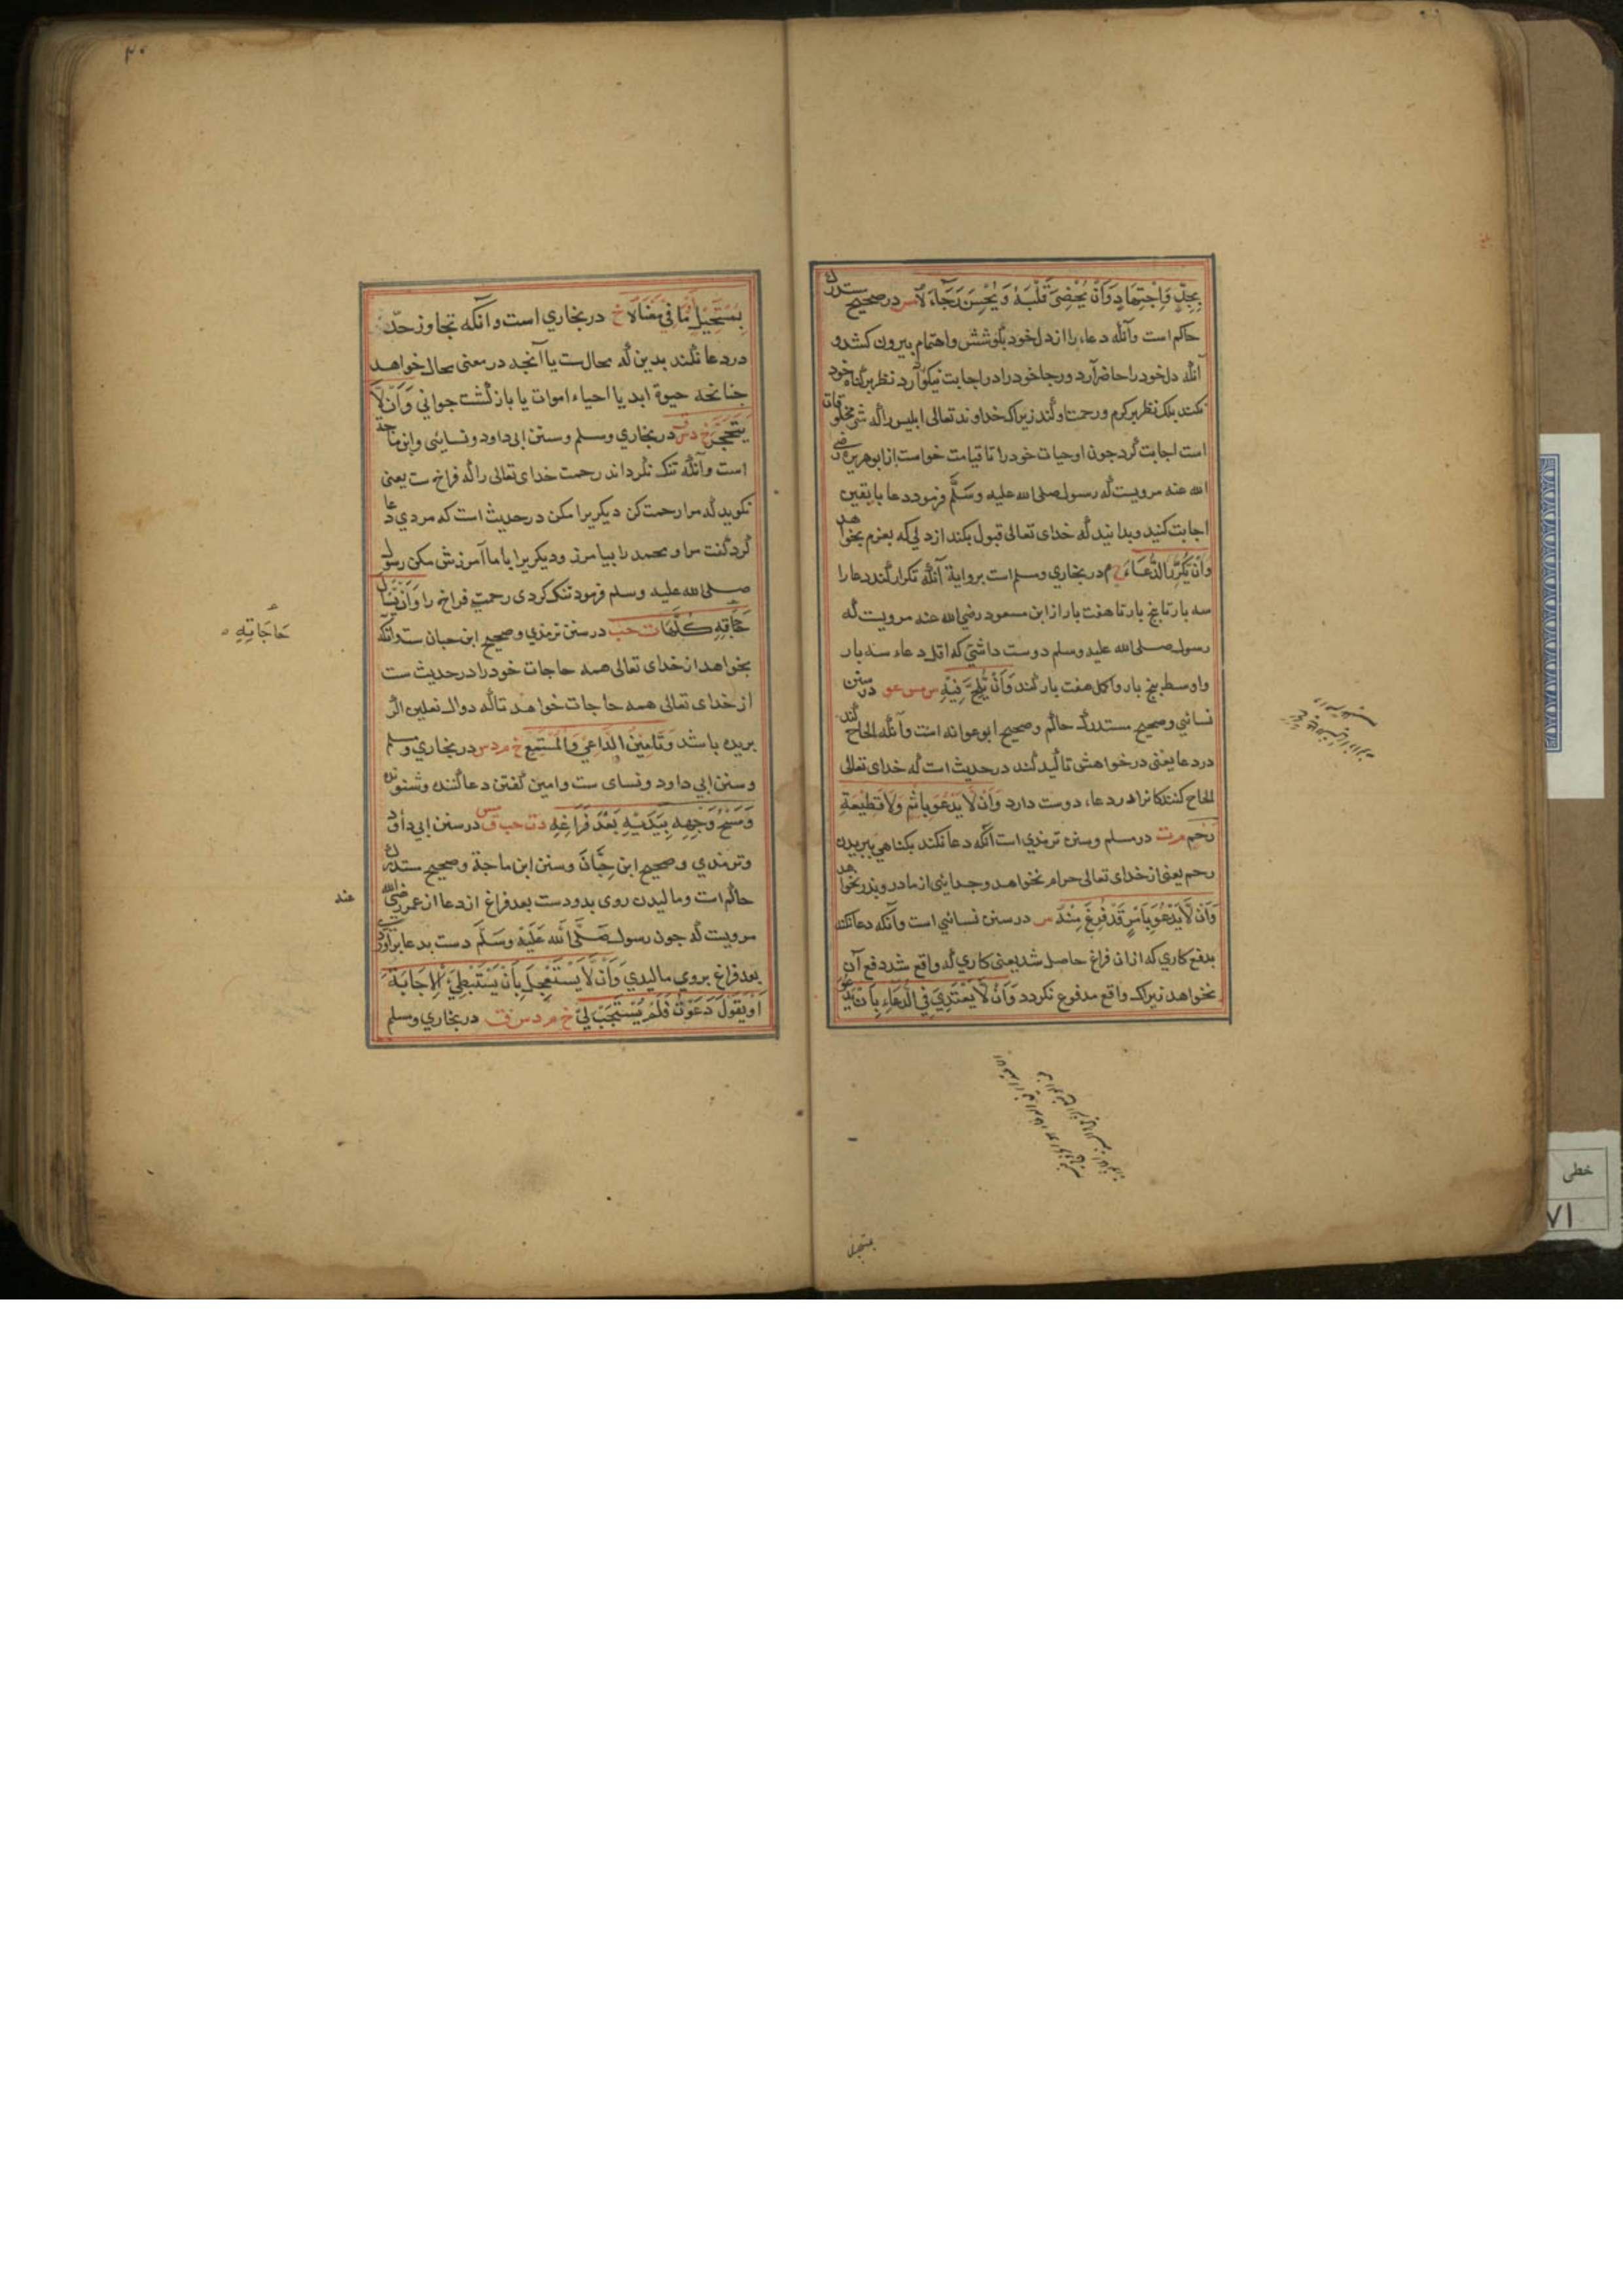 بِجِدٍّ وَاجْتِهَادٍ وَاَنْ يُحْضِرَ قَلْبَهُ وَيُحْسِنَ رَجَاءَهُ مس در صحيح مستدرك
حاكم است وآنكه دعاء را از دل خود بكوشش واهتمام بيرون كشد و
آنكه دل خود را حاضر آرد ورجا خود را در اجابت نيكو آرد نظر بر كناه خود
نكند بلك نظر بر كرم ورحمت او كند زيراك خداوند تعالى ابليس را كه شر مخلوقات
است اجابت كرد جون او حيات خود را تا قيامت خواست از ابو هريره رضي
الله عنه مرويست كه رسول صلى الله عليه وسَلَّم فرمود دعا با يقين
اجابت كنيد وبدانيد كه خداى تعالى قبول نكند از دلي كه بعزم نخواهد
وَاَنْ يُكَرِّرَ الدُّعَاءَ خ م در بخاري ومسلم است برواية آنكه تكرار كند دعا را
سه بار تا پنج بار تا هفت بار از ابن مسعود رضي الله عنه مرويست كه
رسول صلى الله عليه وسلم دوست داشتي كه اقل دعاء سه بار
واوسط پنج بار واكمل هفت بار كند وَاَنْ يُلِحَّ فِيْهِ س مس عو در سنن
نسائي وصحيح مستدرك حاكم وصحيح ابو عوانه است وآنكه الحاح كند
در دعا يعنى در خواهش تاكيد كند در حديث است كه خداى تعالى
الحاح كنندكانرا در دعاء دوست دارد وَاَنْ لَا يَدْعُوَ بِاِثْمٍ وَلَا قَطِيْعَةِ
رَحِمٍ م ت در مسلم وسنن ترمذي است آنكه دعا نكند بكناهي ببريدن
رحم يعنى از خداى تعالى حرام نخواهد وجدايى از مادر وپدر نخواهد
وَاَنْ لَا يَدْعُوَ بِاَمْرٍ قَدْ فُرِغَ مِنْهُ س در سنن نسائي است وآنكه دعا نكند
بدفع كاري كه ازان فراغ حاصل شد يعنى كاري كه واقع شد دفع آن
نخواهد زيراك واقع مدفوع نكردد وَاَنْ لَا يَعْتَدِيَ فِي الدُّعَاءِ بِاَنْ يَدْعُوَ
۳۰
بِمُسْتَحِيْلٍ اَوْ مَا فِي مَعْنَاهُ خ در بخاري است وآنكه تجاوز حدّ
در دعا نكند بدين كه محالست يا آنچه در معنى محال خواهد
چنانچه حيوة ابد يا احياء اموات يا باز كشت جواني وَاَنْ لَا
يَتَحَجَّرَ خ د س ق در بخاري ومسلم وسنن ابى داود ونسايئى وابن ماجه
است وآنكه تنك نكرداند رحمت خداى تعالى را كه فراخ ست يعنى
نكويد كه مرا رحمت كن ديكريرا مكن در حديث است كه مردي دعا
كرد كفت مرا ومحمد را بيامرز وديكريرا با ما آمرزش مكن رسول
صلى الله عليه وسلم فرمود تنك كردى رحمتِ فراخ را وَاَنْ يَسْاَلَ
حَاجَاتِهِ كُلَّهَا ت حب در سنن ترمذي وصحيح ابن حبان ست وآنكه
بخواهد از خداى تعالى همه حاجات خود را در حديث ست
از خداى تعالى همه حاجات خواهند تا كه دوال نعلين اكر
بريده باشد وَتَاْمِيْنُ الدَّاعِيْ وَالْمُسْتَمِعِ خ م د س در بخاري ومسلم
وسنن ابي داود ونساى ست وامين كفتن دعا كننده وشنونده
وَمَسْحُ وَجْهِهِ بِيَدَيْهِ بَعْدَ فَرَاغِهِ د ت حب ق مس در سنن ابي داود
وترمذي وصحيح ابن حِبَّانَ وسنن ابن ماجة وصحيح مستدرك
حاكم است وماليدن روى بدو دست بعد فراغ از دعا از عمر رضى الله
عنه
مرويست كه جون رسول صَلَّى الله عَلَيْهِ وسَلَّمَ دست بدعا برآوردي
بعد فراغ بروي ماليدي وَاَنْ لَا يَسْتَعْجِلَ بِاَنْ يَسْتَبْطِيَ الْاِجَابَةَ
اَوْ يَقُوْلَ دَعَوْتُ فَلَمْ يُسْتَجَبْ لِيْ خ م د س ق در بخاري ومسلم
حَاجَاتِهِ
خطى
۷۱